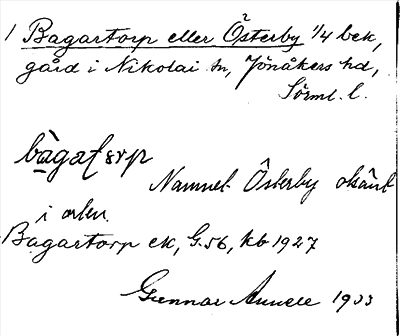 1 Bagartorp eller Österby 1/4 bek,
gård i Nikolai sn, Jönåkers hd,
Sörml. l.
Namnet Österby okänt
i orten.
Bagartorp ek, G.56, kb 1927
Gunnar 1933